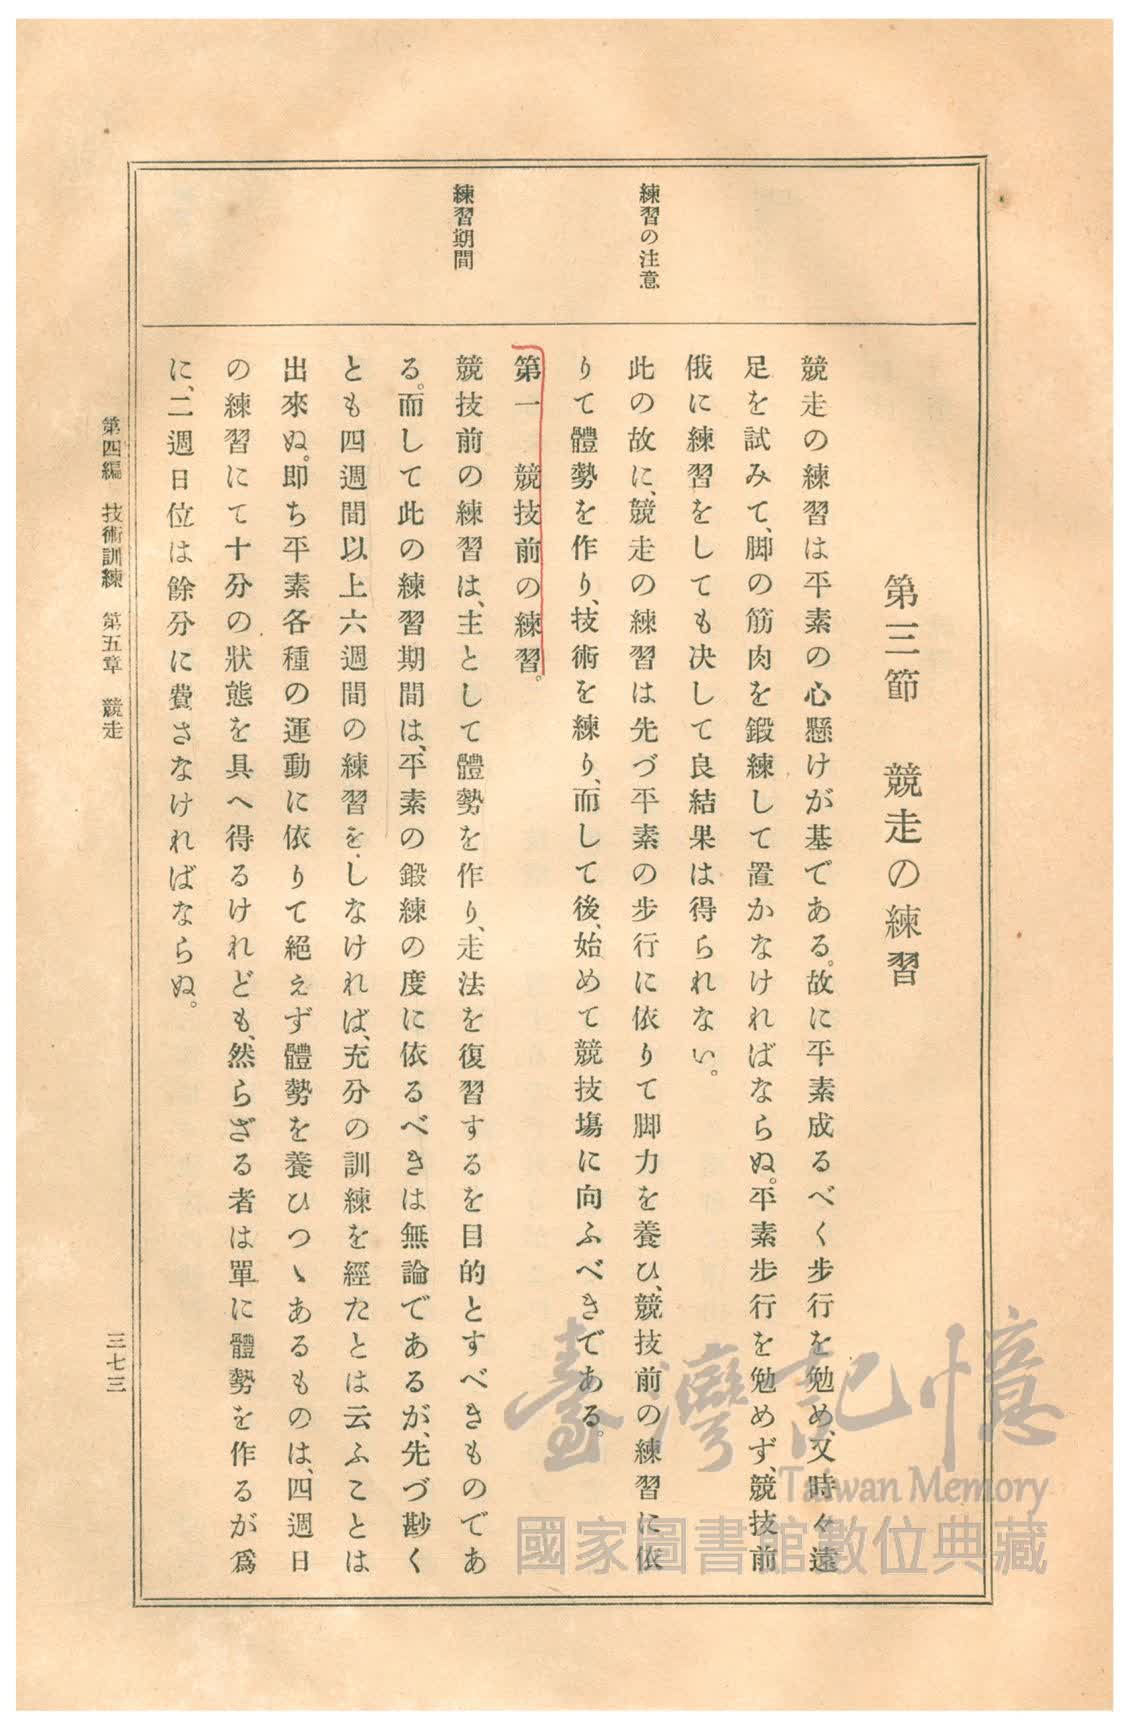 練習の注意
練習期間
第三節　競走の練習
競走の練習は平素の心懸けが基である。故に平素成るべく步行を勉め、又時々遠
足を試みて、脚の筋肉を鍛練して置かなければならぬ。平素步行を勉めず、競技前
俄に練習をしても決して良結果は得られない。
此の故に、競走の練習は先づ平素の步行に依りて脚力を養ひ、競技前の練習に依
りて體勢を作り、技術を練り、而して後、始めて競技塲に向ふべきである。
第一　競技前の練習。
競技前の練習は、主として體勢を作り、走法を復習するを目的とすべきものであ
る。而して此の練習期間は、平素の鍛練の度に依るべきは無論であるが、先づ尠く
とも四週間以上六週間の練習をしなければ、充分の訓練を經たとは云ふことは
出來ぬ。卽ち平素各種の運動に依りて絕えず體勢を養ひつゝあるものは、四週日
の練習にて十分の狀態を具へ得るけれども、然らざる者は單に體勢を作るが爲
に、二週日位は餘分に費さなければならぬ。
第四編　技術訓練　第五章　競走
三七三
臺灣記憶
Taiwan Memory
國家圖書館數位典藏